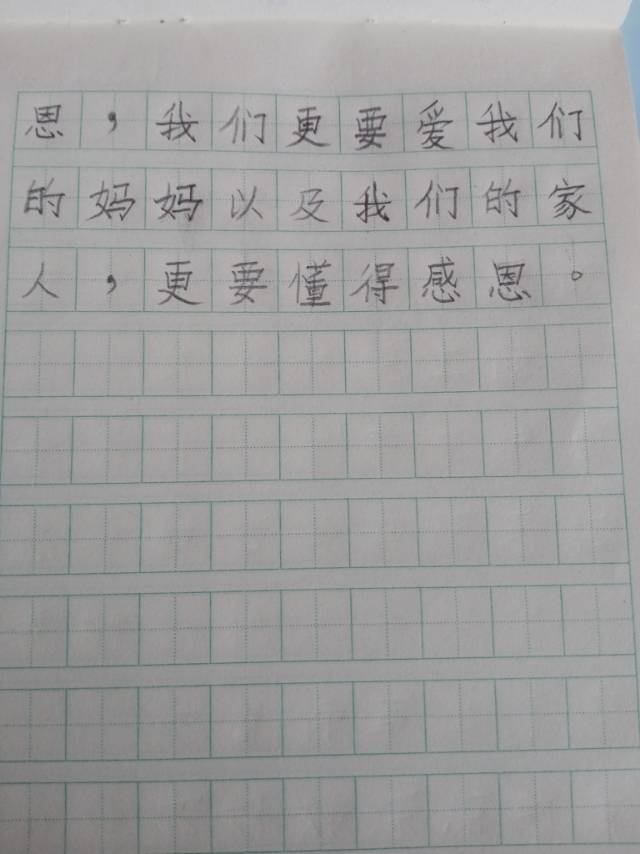 恩，我们更要爱我们
的妈妈以及我们的家
人，更要懂得感恩。